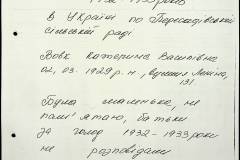 1932-1933 років
в Україні по Пересадівській
сільській раді
Вовк Катерина Василівна
02.03.1929 р.н., вулиця Леніна,
131
Була маленька, не
пам'ятаю, батьки
за голод 1932-1933 роки
не розповідали